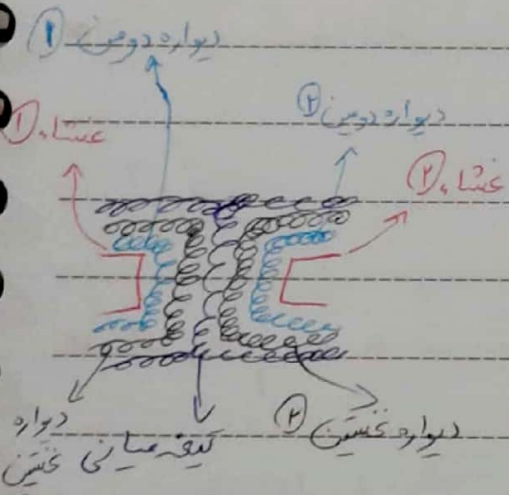 دیواره دومین ①
دیواره دومین ②
غشاء ①
غشاء ②
دیواره نخستین
تیغه میانی
دیواره نخستین ②